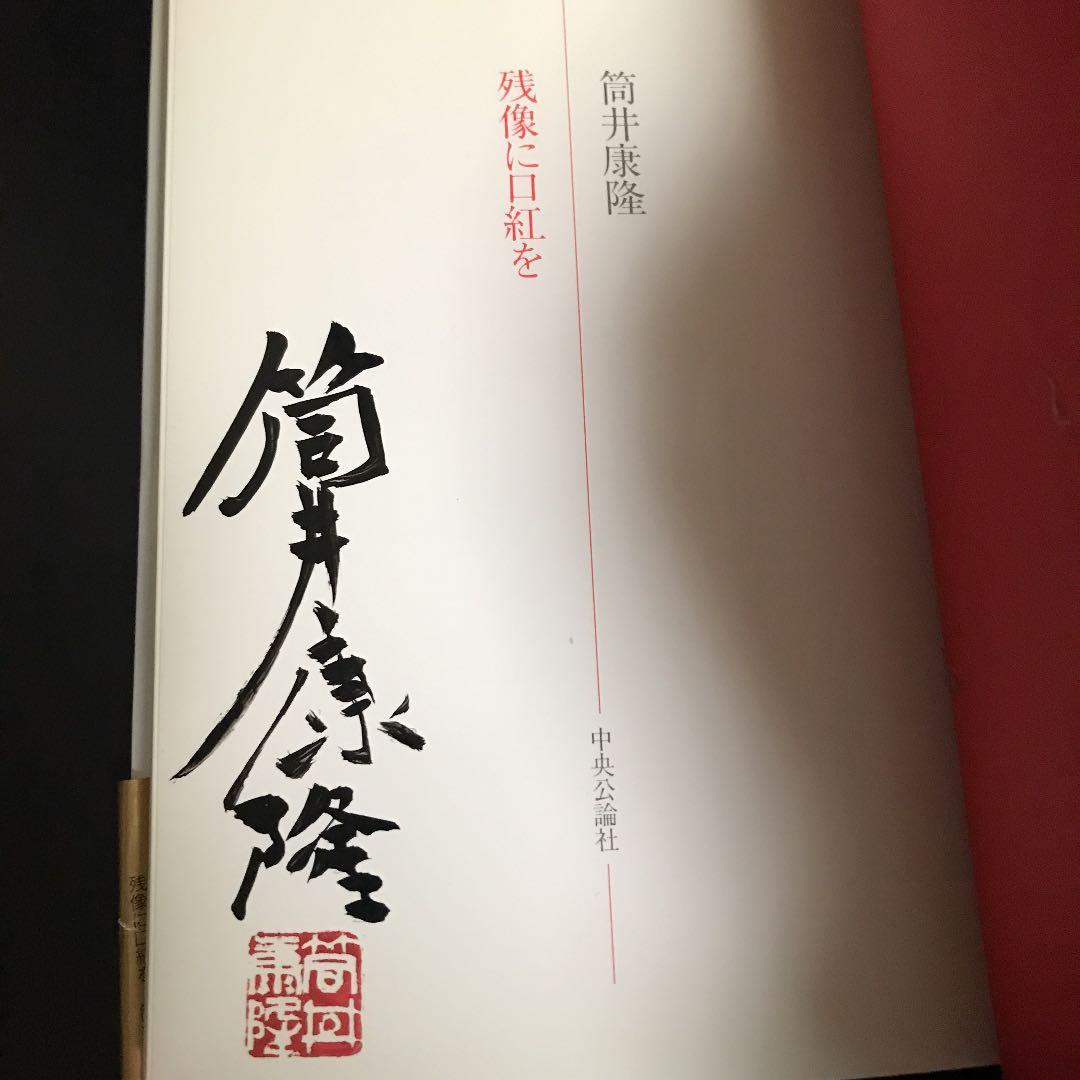 筒井康隆
残像に口紅を
中央公論社
筒井康隆
筒井
康隆
残像に口紅を